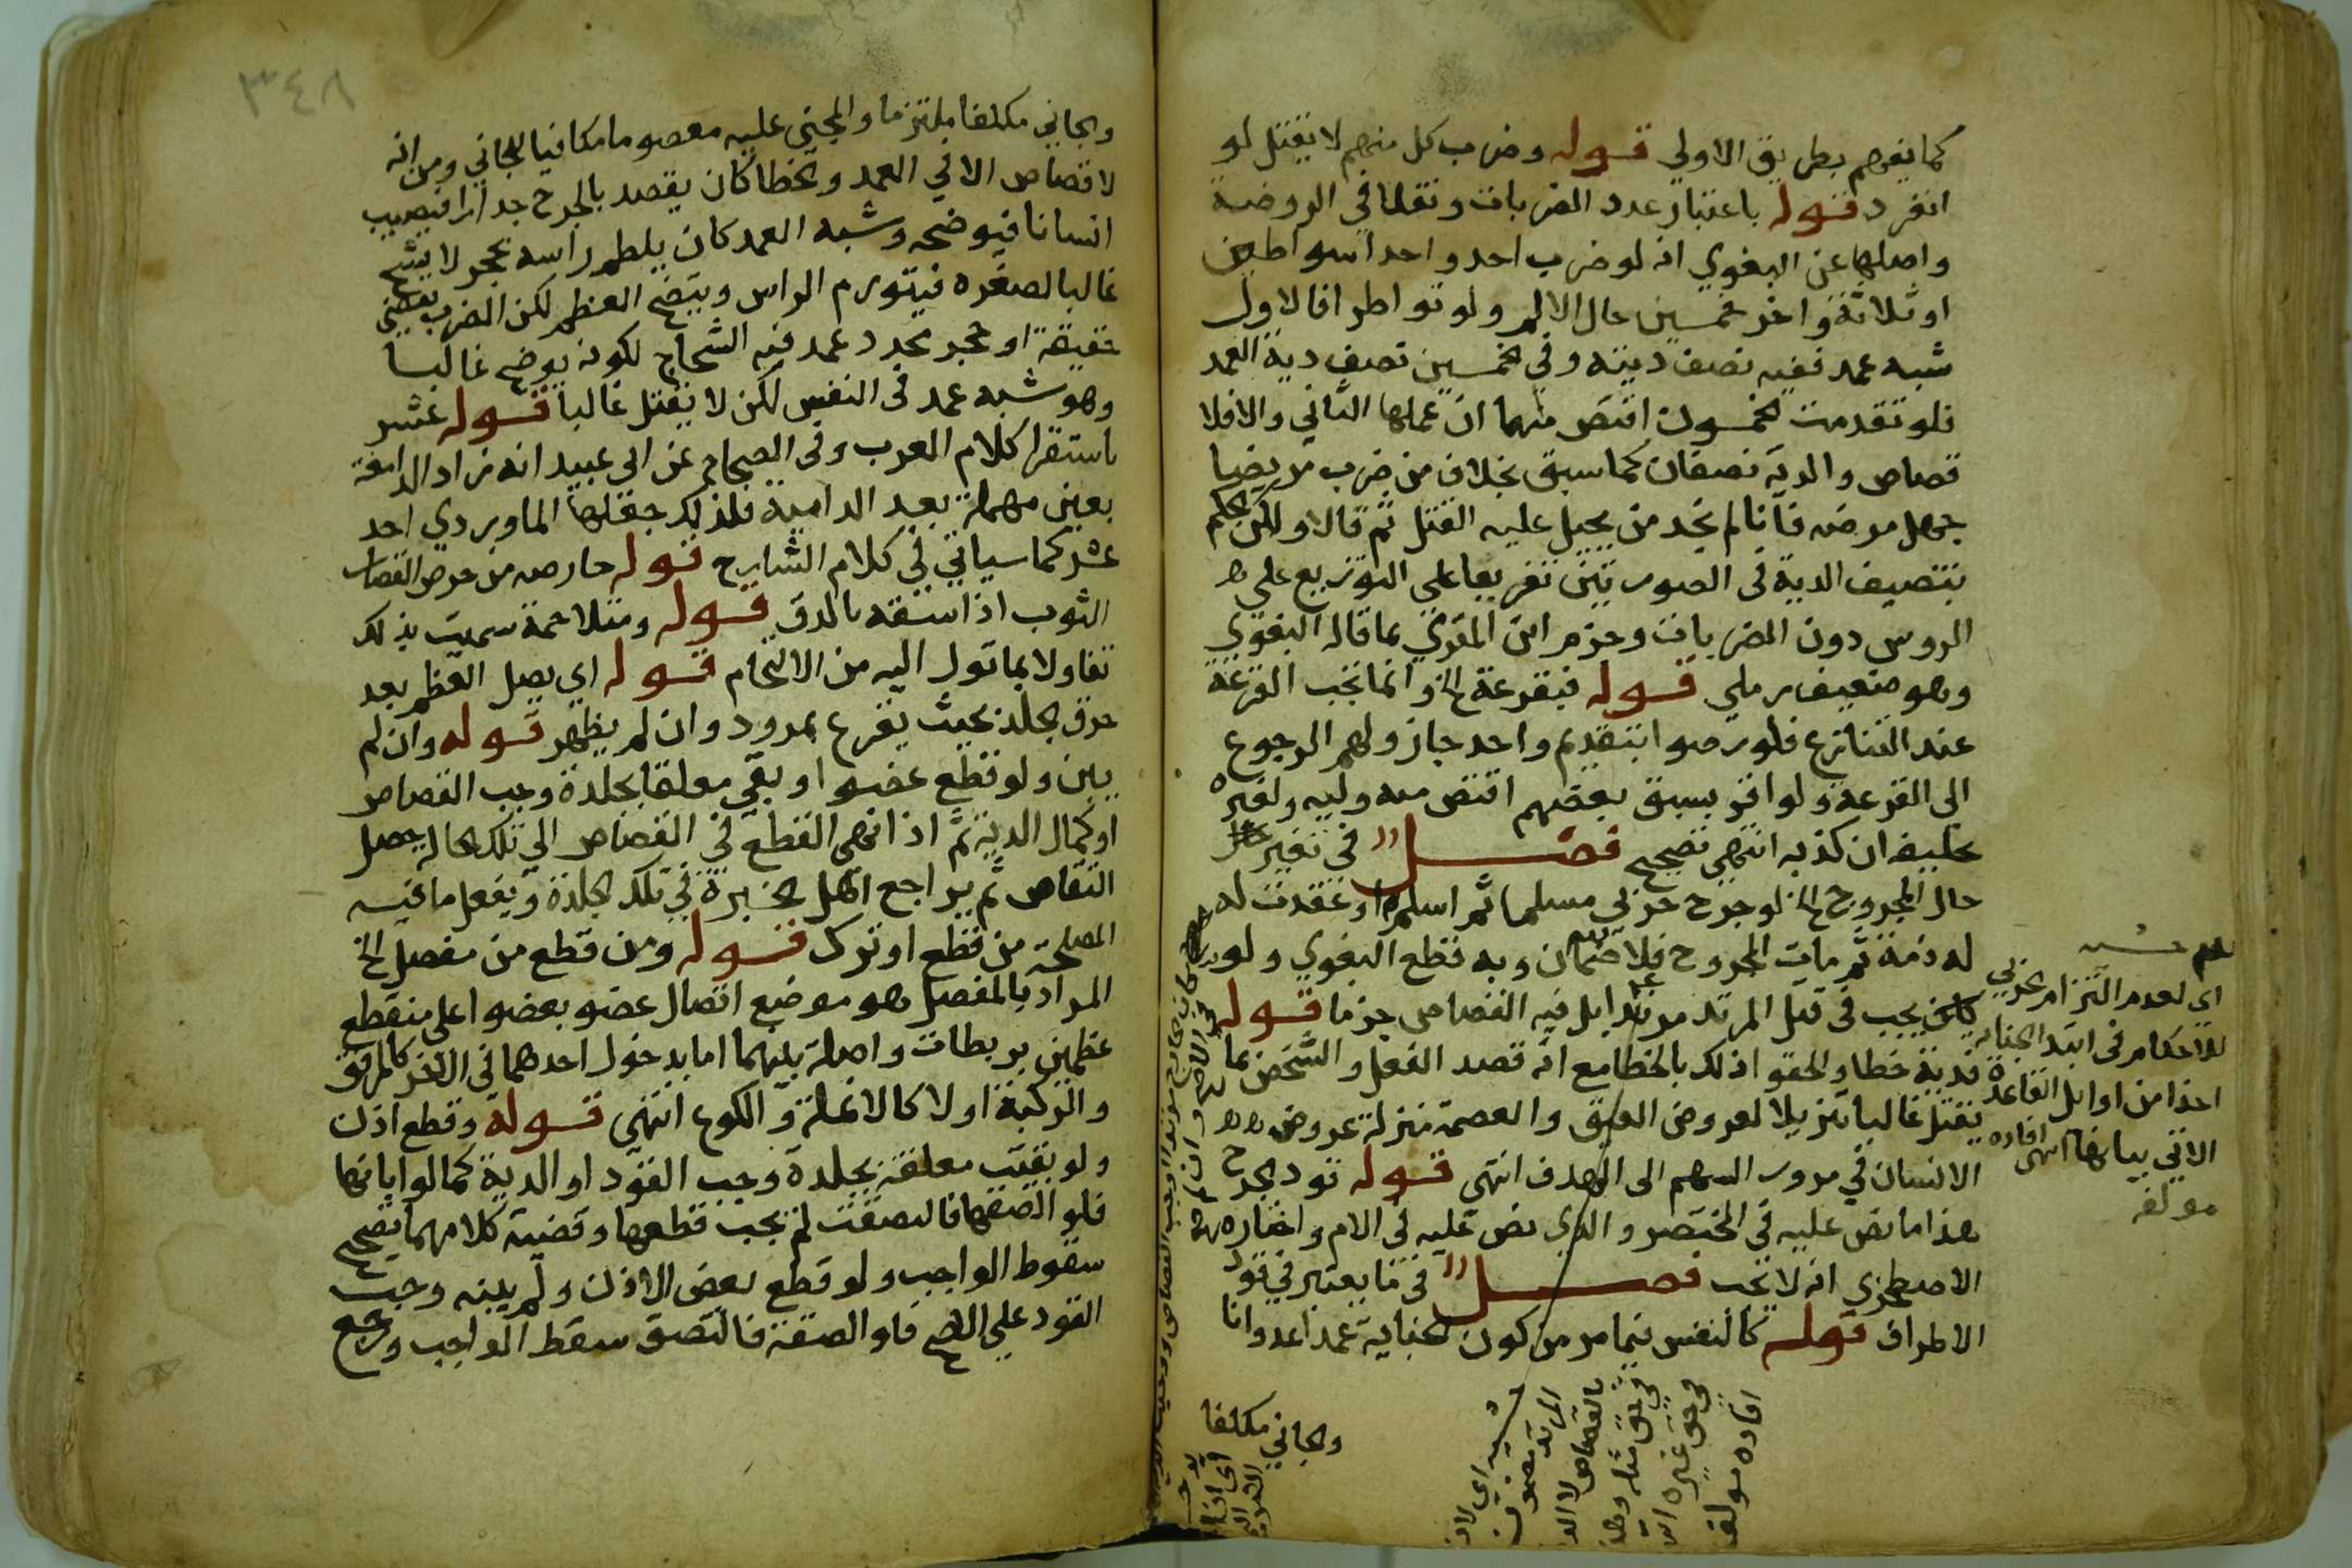 كما يفهم بطريق الاولي قوله وضرب كل منهم لا يقتل لو
انفرد قوله باعتبار عدد الضربات ونقلا في الروضة
واصلها عن البغوي انه لو ضرب احد واحدا سوطين
او ثلاثة واخر خمسين حال الالم ولو تواطوا فالاول
شبه عمد ففيه نصف ديته وفي الخمسين نصف دية العمد
فلو تقدمت الخمسون اقتص منهما ان علمها الثاني والا فلا
قصاص والدية نصفان كما سبق بخلاف من ضرب مريضا
جهل مرضه فانا لم نجد من يحيل عليه القتل ثم قالا ولم نحكم
بتنصيف الدية في الصورتين تفريعا على التوزيع على
الروس دون الضربات وجزم ابن المقري بما قاله البغوي
وهو ضعيف رملي قوله فبقرعة الخ وانما تجب القرعة
عند التنازع فلو رضوا بتقديم واحد جاز ولهم الرجوع
الى القرعة ولو اقر بسبق بعضهم اقتص منه وليه ولغيره
تحليفه ان كذبه انتهى تصحيح فصل في تغير
حال المجروح الخ لو جرح حربي مسلما ثم اسلم او عقدت له
له ذمة ثم مات المجروح فلا ضمان وبه قطع البغوي ولو
يجب في قتل المرتد مرتدا بل فيه القصاص جزما قوله
فدية خطا والحقوا ذلك بالخطا مع انه قصد الفعل والشخص بما
يقتل غالبا تنزيلا لعروض العتق والعصمة منزلة عروض
الانسان في مرور السهم الى الهدف انتهى قوله قود الجرح
هذا ما نص عليه في المختصر والذي نص عليه في الام واختاره
الاصطخري انه لا تجب فصل في ما يعتبر في قود
الاطراف قوله كالنفس فيما مر من كون الجناية عمدا عدوانا
والجاني مكلفا
اي لعدم التزام الحربي
للاحكام في ابتداء الجناية
اخذا من اوايل القاعدة
الاتي بيانها انتهى افاده
مولفه
افاده مولفه
٣٤٨
والجاني مكلفا ملتزما والمجني عليه معصوما مكافيا للجاني ومن انه
لا قصاص الا في العمد والخطا كان يقصد بالجرح جدارا فيصيب
انسانا فيوضحه وشبه العمد كان يلطم راسه بحجر لا يشج
غالبا لصغره فيتورم الراس ويتضح العظم لكن الضرب بعصى
خفيفة او حجر محدد عمد فيه الشجاج لكونه يوضح غالبا
وهو شبه عمد في النفس لكن لا يقتل غالبا قوله عشر
باستقرا كلام العرب وفي الصحاح عن ابي عبيد انه زاد الدامعة
بعين مهملة بعد الدامية فلذلك جعلها الماوردي احد
عشر كما سياتي في كلام الشارح قوله حارصه من حرص القصار
الثوب اذا شقه بالدق قوله ومتلاحمة سميت بذلك
تفاولا بما تول اليه من الالتحام قوله اي يصل العظم بعد
خرق الجلد بحيث يقرع بمرود وان لم يظهر قوله وان لم
يبن ولو قطع عضوا وبقي معلقا بجلدة وجب القصاص
او كمال الدية ثم اذا انتهى القطع في القصاص الي تلك الحالة حصل
القصاص ثم يراجع اهل الخبرة في تلك الجلدة ويفعل ما فيه
المصلحة من قطع او ترك قوله ومن قطع من مفصل الخ
المراد بالمفصل هو موضع اتصال عضو بعضو اعلى منقطع
عظمين برباطات واصلة بينهما اما بدخول احدهما في الاخر كالمرفق
والركبة او لا كالانملة والكوع انتهى قوله وقطع اذن
ولو بقيت معلقة بجلدة وجب القود او الدية كما لو ابانها
فلو الصقها فالتصقت لم يجب قطعها وقضية كلامهما تصحيح
سقوط الواجب ولو قطع بعض الاذن ولم يبنه وجب
القود علي الاصح فلو الصقه فالتصق سقط الواجب ورجع